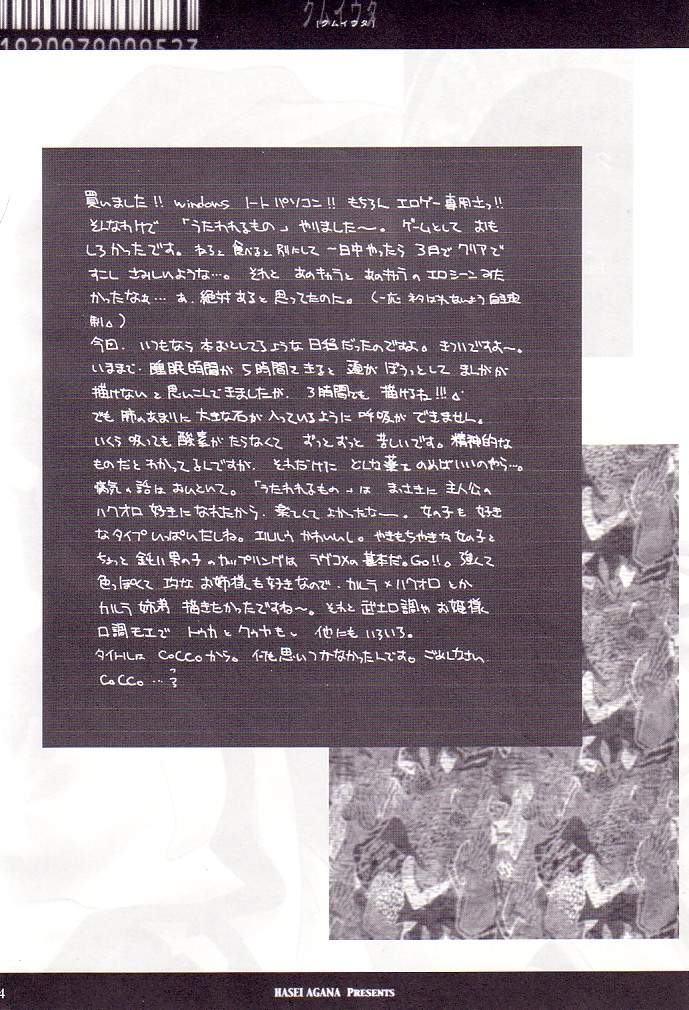 1920979009523
クムイウタ
[クムイウタ]
買いました!! windows ノートパソコン!! もちろん エロゲー専用士っ!!
そんなわけで 「うたわれるもの」 やりました〜。 ゲームとして おも
しろかったです。 ねると 食べると 別にして 一日中やったら 3日で クリアで
すこし さみしいような…。 それと あのキャラと あのキャラの エロシーン みた
かったなぁ… あ、絶対あると思ってたのた。 (一応 ネタばれないよう 自主規
制。)
今回、 いつもなら 本おとしてるような 日程だったのですよ。 きついですよ〜。
いままで、睡眠時間が 5時間できると 頭が ぼうっとして まんがが
描けない と 思いこんできましたが、 3時間でも 描けるね!!!。
でも 肺のあたりに 大きな石が 入っているように 呼吸が できません。
いくら 吸っても 酸素が たらなくて ずっとずっと 苦しいです。 精神的な
ものだと わかってるんですが、 それだけに どんな薬を のめばいいのやら…。
病気の話は おいといて。 「うたわれるもの」は まっさきに 主人公の
ハクオロ 好きになれたから、 楽しくて よかったなー。 女の子も 好き
なタイプ いっぱいだしね。 エルルゥ かわいいし。 やきもちやきな 女の子と
ちょっと 鈍い 男の子の カップリングは ラヴコメの 基本だ。 Go!!。 強くて
色っぽくて 巧な お姉様も 好きなので、 カルラ×ハクオロ とか
カルラ 姉弟 描きたかったですね〜。 それと 武士口調や お姫様
口調モエで トウカ と クゥヤも。 他にも いろいろ。
タイトルは Coccoから。 何も思いつかなかったんです。 ごめんなさい
Cocco …っ
4
HASEI AGANA PRESENTS